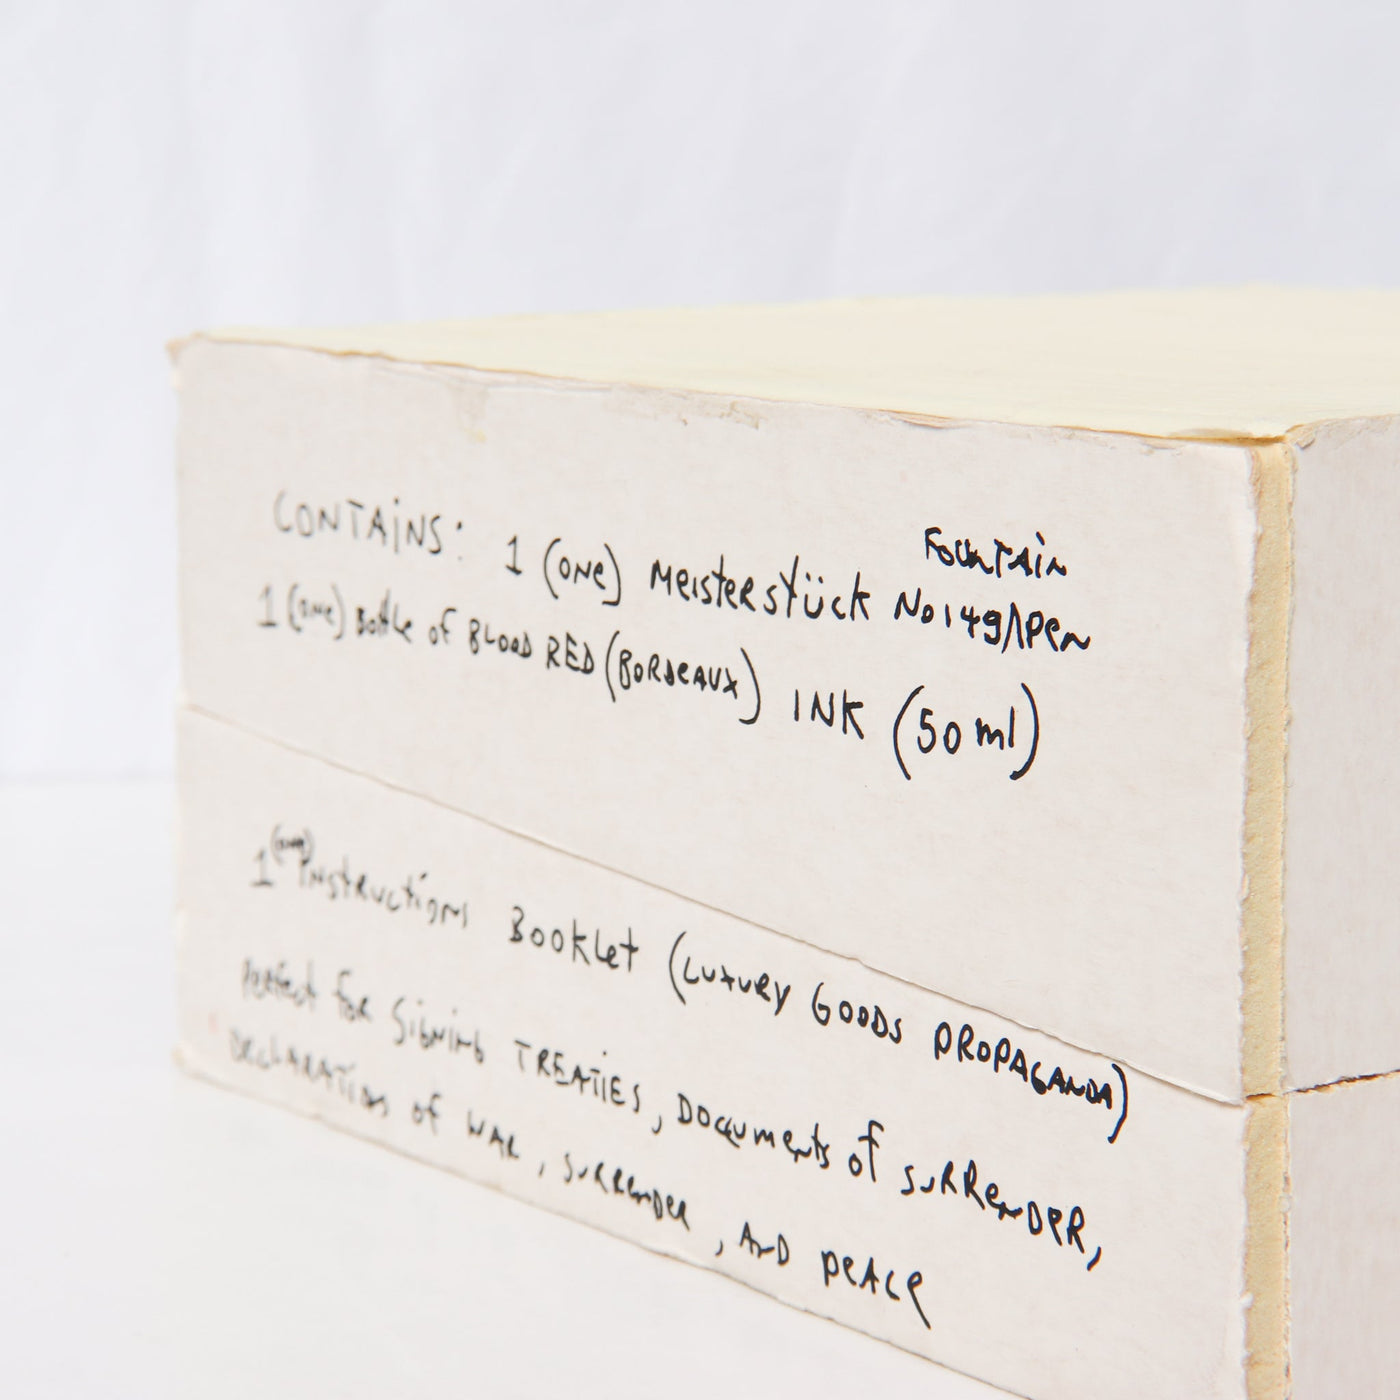 CONTAiNS: 1 (ONe) MeisteRstücK No149/\PeN
FOUNTAiN
1 (ONe) Bottle of BLOOD RED (BORDeAUX) INK (50 ml)
1 (ONe) INstRuctiONs BOOKLet (LUXURY GOODS PROPAGANDA)
PeRfect foR SiGNiNG TREATiES, DOCUmeNts of SURReNDeR,
DeCLARATiONs of WAR, SURReNDeR, AND PeACe